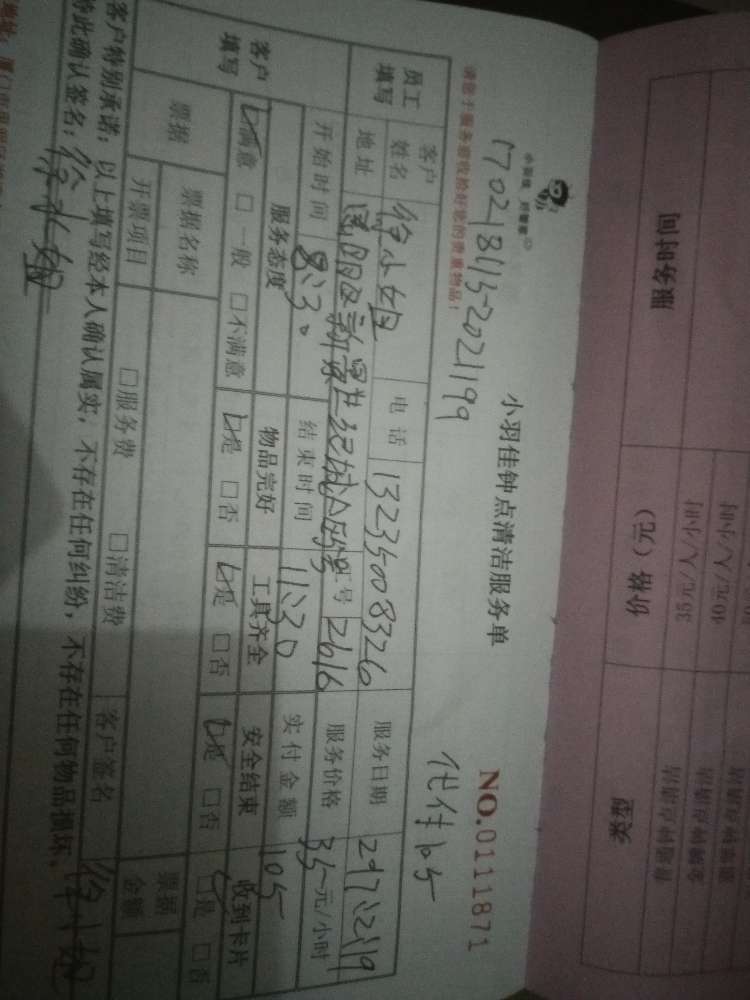 服务时间
价格（元）
类型
35元/人/小时
普通钟点清洁
40元/人/小时
金牌钟点清洁
小羽佳钟点清洁服务单
NO.0111871
请您于服务前收拾好您的贵重物品！
代付105
员工填写
客户姓名
徐小姐
电话
13235008326
服务日期
地址
工号
2616
服务价格
35元/小时
开始时间
8:30
结束时间
11:30
实付金额
105
客户填写
服务态度
物品完好
工具齐全
安全结束
收到卡片
满意 □一般 □不满意
是 □否
是 □否
是 □否
是 □否
票据
票据名称
开票项目
□服务费 □清洁费
客户签名
徐小姐
票据金额
客户特别承诺：以上填写经本人确认属实，不存在任何纠纷，不存在任何物品损坏、
特此确认签名：徐小姐